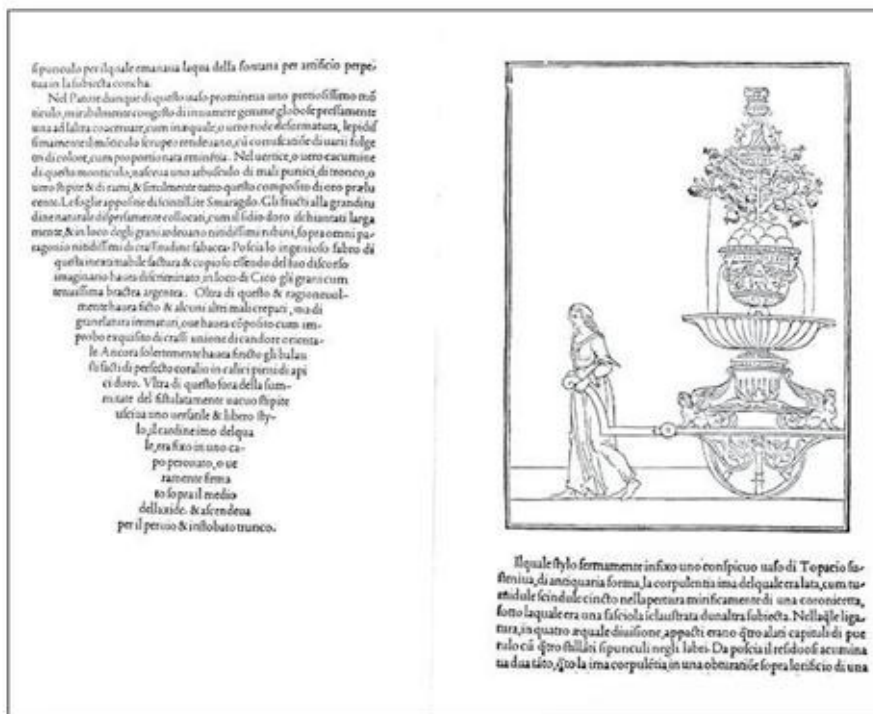 sipunculo per ilquale emanaua laqua della fontana per artificio perpe-
tua in la subiecta concha.
Nel Patore dunque di questo uaso promineua uno pretiosissimo mõ
ticulo, mirabilmente congesto di innumere gemme globose pressamente
una ad laltra coaceruate, cum inæquale, o uero rude deformatura, lepidis
simamente il mõticulo scrupeo rendeuano, cũ coruscatiõe di uarii fulge
tri di colore, cum proportionata eminẽtia. Nel uertice, o uero cacumine
di questo monticulo, nasceua uno arbusculo di mali punici, di tronco, o
uero stipite & di rami, & similmente tutto questo composito di oro prælu
cente. Le foglie apposite di scintillãte Smaragdo. Gli fructi alla granditu
dine naturale dispersamente collocati, cum il sidio doro ischiantati larga
mente, & in loco degli grani ardeuano nitidissimi rubini, sopra omni pa-
ragonio nitidissimi di crassitudine fabacea. Poscia lo ingenioso fabro di
questa inextimabile factura & copioso essendo del suo discorso
imaginario hauea discriminato, in loco di Cico gli grani cum
tenuissima bractea argentea. Oltra di questo & ragioneuol-
mente hauea ficto & alcuni altri mali crepati, ma di
granelatura immaturi, oue hauea cõposito cum im-
probo exquisito di crassi unione di candore orienta-
le. Ancora solertemente hauea fincto gli balau
sti facti di perfecto coralio in calici pieni di api
ci doro. Vltra di questo fora della sum-
mitate del fistulatamente uacuo stipite
usciua uno uersatile & libero sty-
lo, il cardine imo delqua
le, era fixo in uno ca-
po peronato, o ue
ramente firma
to sopra il medio
dellaxide. & ascendeua
per il peruio & instobato trunco.
Ilquale stylo fermamente infixo uno conspicuo uaso di Topacio su-
steniua, di antiquaria forma, la corpulentia ima delquale era lata, cum tu-
midule scindule cincto nella pertura mirificamente di una coronicetta,
sotto laquale era una fasciola iclaustrata dunaltra subiecta. Nellaq̃le liga-
tura, in quatro æquale diuisione, appacti erano q̃tro alati capituli di pue
rulo cũ q̃tro stillãti sipunculi negli labri. Da poscia il residuo se acumina
ua dua tãto, q̃to la ima corpulẽtia, in una obturatiõe sopra lorificio di una